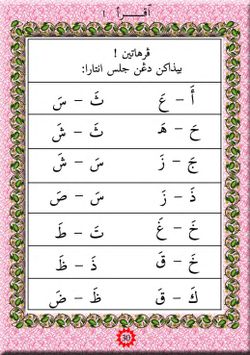 اقرأ ١
ڤرهاتين !
بيذاكن دڠن جلس انتارا:
أَ - عَ ثَ - سَ
حَ - هَـ ثَ - شَ
جَ - زَ سَ - شَ
ذَ - زَ سَ - صَ
خَ - غَ تَ - طَ
خَ - قَ ذَ - ظَ
كَ - قَ ظَ - ضَ
30